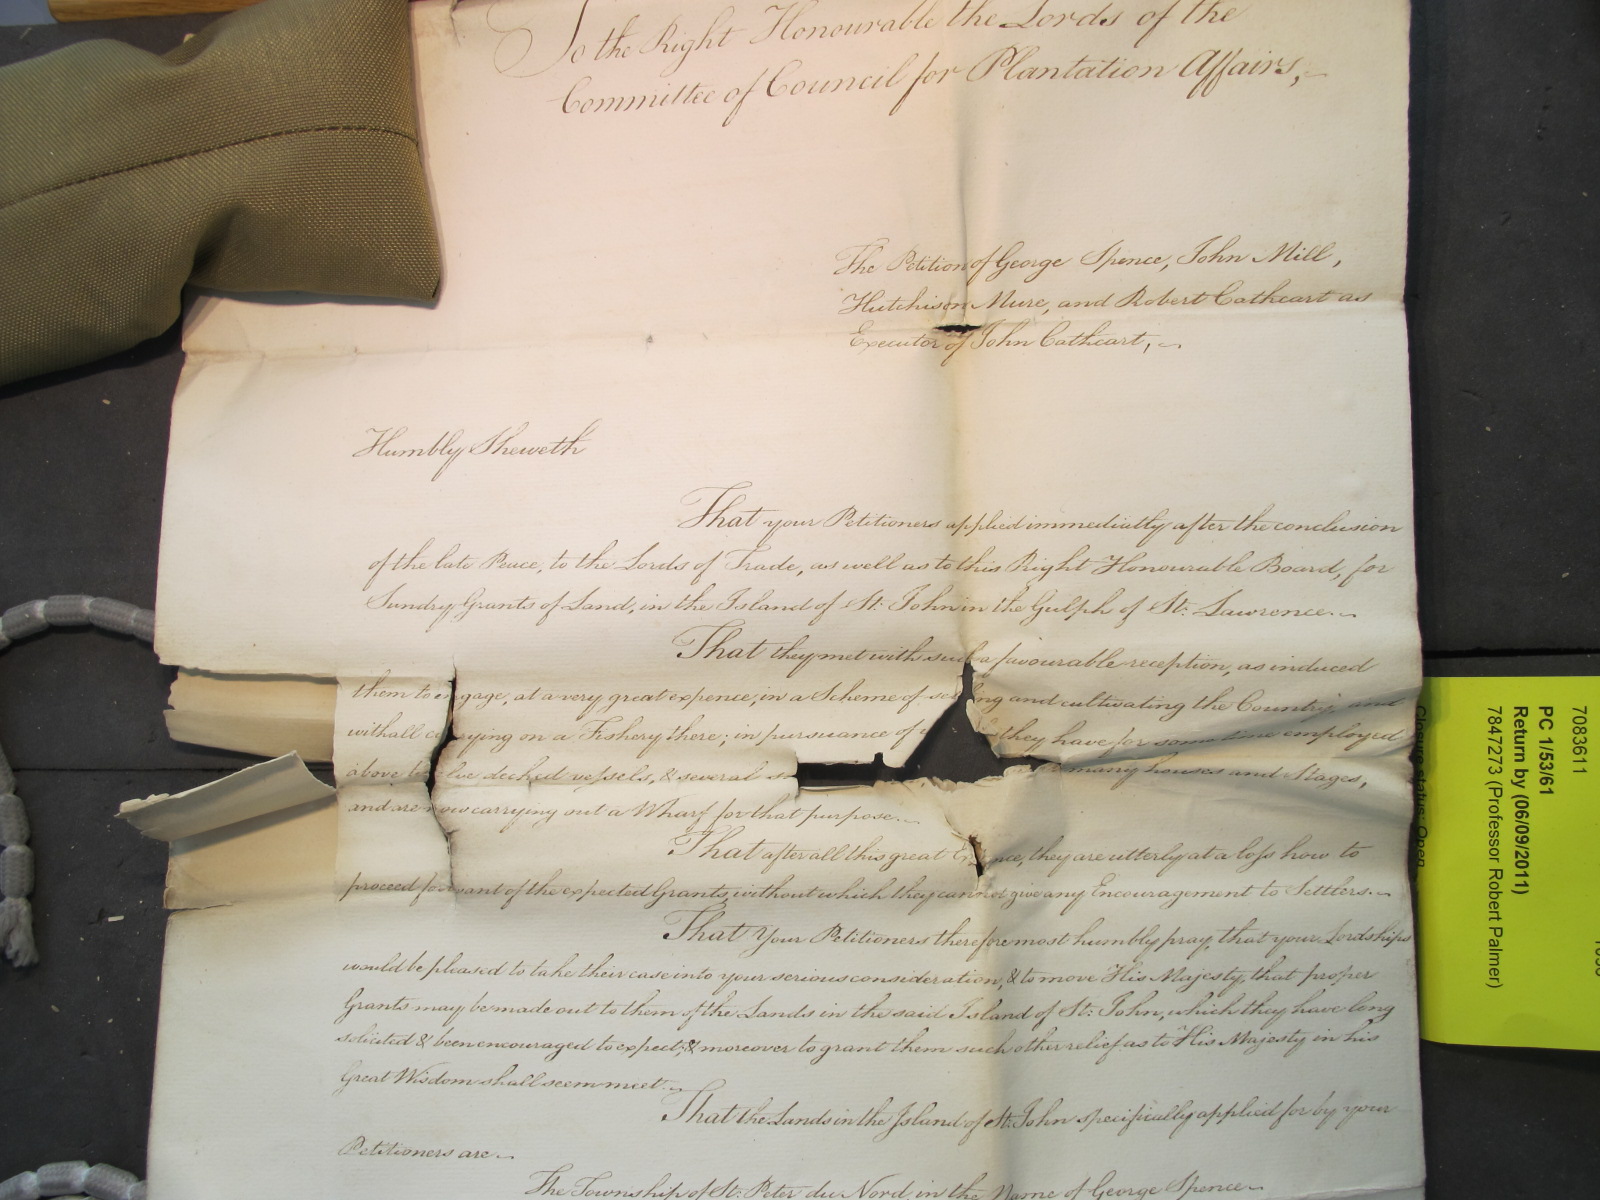 To the Right Honourable the Lords of the
Committee of Council for Plantation Affairs,
The Petition of George Spence, John Mill,
Hutchison Mure, and Robert Cathcart as
Executor of John Cathcart,
Humbly Sheweth
That your Petitioners applied immediatly after the conclusion
of the late Peace, to the Lords of Trade, as well as to this Right Honourable Board, for
Sundry Grants of Land, in the Island of St. John in the Gulph of St. Lawrence.
That they met with such a favourable reception, as induced
them to engage, at a very great expence, in a Scheme of settling and cultivating the Country, and
withall carrying on a Fishery there; in pursuance of they have for some time employed
above twelve decked vessels, & several many houses and Stages,
and are now carrying out a Wharf for that purpose.
That after all this great Expence, they are utterly at a loss how to
proceed for want of the expected Grants, without which they cannot give any Encouragement to Settlers.
That Your Petitioners therefore most humbly pray, that your Lordships
would be pleased to take their case into your serious consideration, & to move His Majesty, that proper
Grants may be made out to them of the Lands in the said Island of St. John, which they have long
solicited & been encouraged to expect; & moreover to grant them such other relief as to His Majesty in his
Great Wisdom shall seem meet.
That the Lands in the Island of St. John specifically applied for by your
Petitioners are
The Township of St. Peter du Nord in the Name of George Spence
7083611
PC 1/53/61
Return by (06/09/2011)
7847273 (Professor Robert Palmer)
Closure status: Open